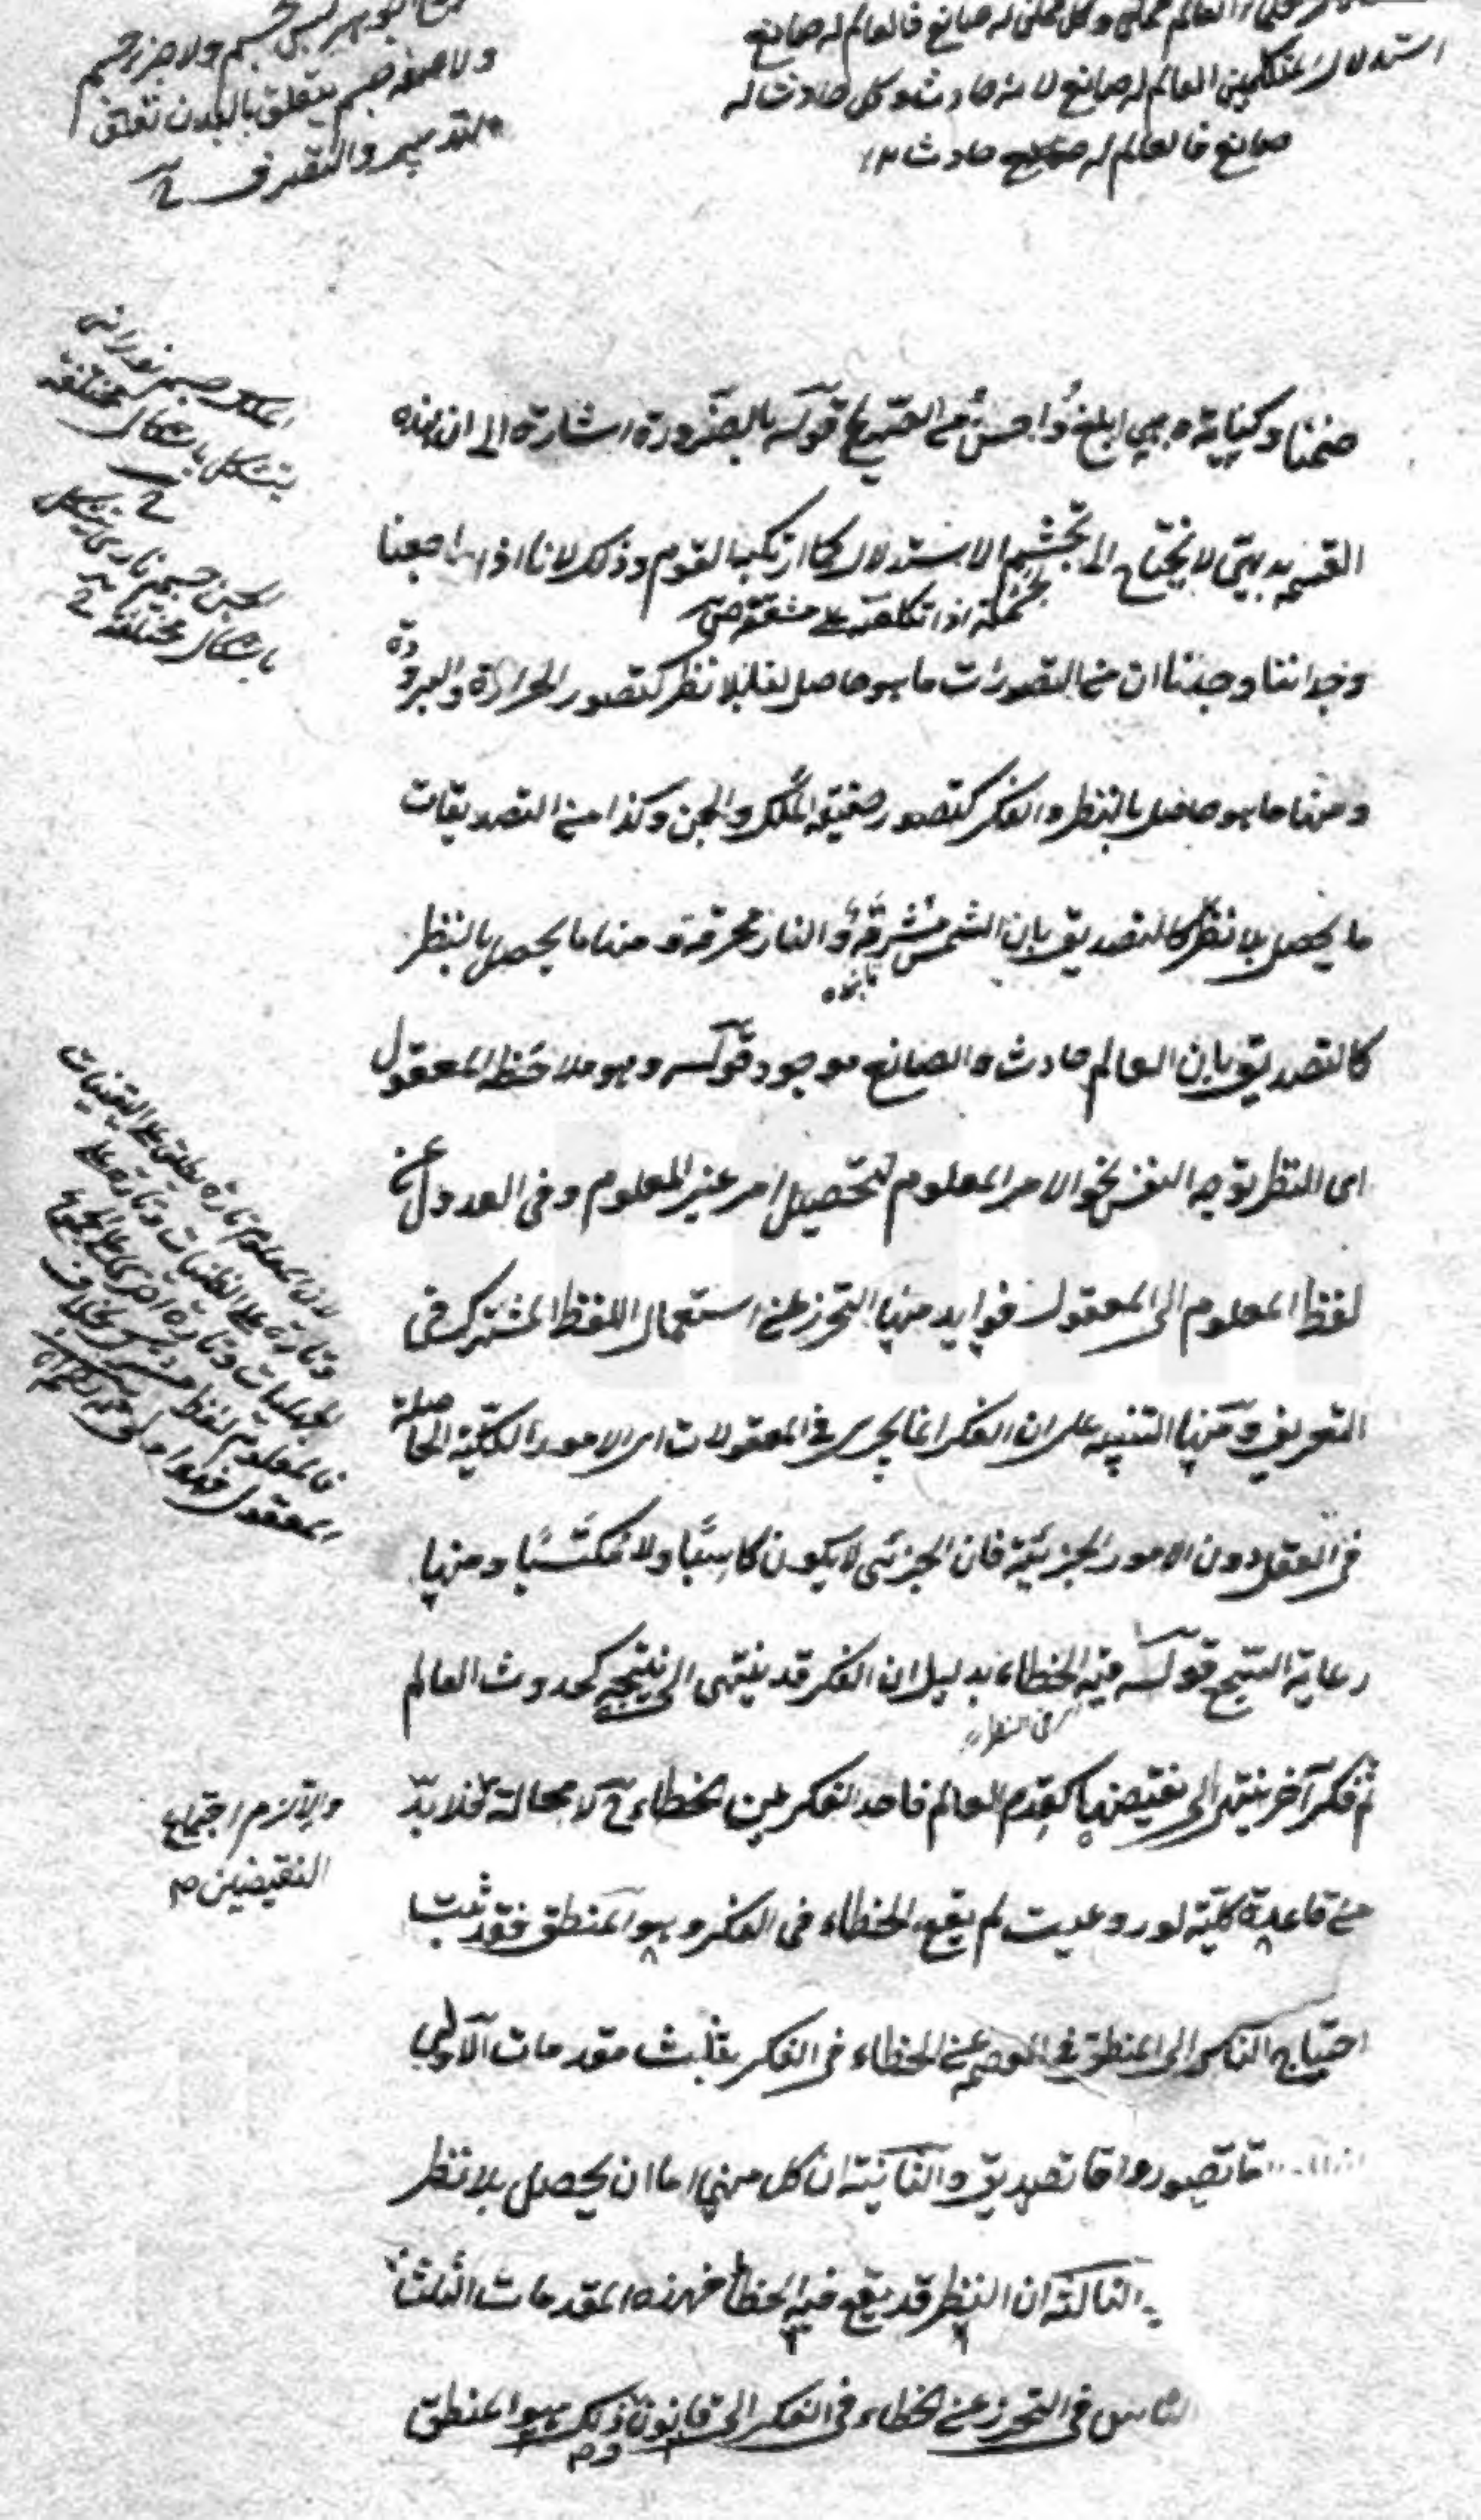 العالم ممكن وكل ممكن له صانع فالعالم له صانع
استدلال المتكلمين العالم له صانع لانه حادث وكل حادث له
صانع فالعالم له صانع حادث ١٢
ليس بجسم ولا جزء جسم
ولا صفة جسم يتعلق بالبدن تعلق
التدبير والتصرف
الملك جسم نوراني
يتشكل باشكال مختلفة
الجن جسم ناري يتشكل
باشكال مختلفة
ضمنا وكناية وهي ابلغ واحسن من الصريح قوله بالضرورة اشارة الى ان هذه
القسمة بديهي لا يحتاج الى تجشم الاستدلال كما ارتكب القوم وذلك لانا اذا راجعنا
تجشمته اذا تكلفته على مشقة ص
وجداننا وجدنا ان من التصورات ما هو حاصل لنا بلا نظر كتصور الحرارة والبرودة
ومنها ما هو حاصل بالنظر والفكر كتصور حقيقة الملك والجن وكذا من التصديقات
ما يحصل بلا نظر كالتصديق بان الشمس مشرقة والنار محرقة ومنها ما يحصل بالنظر
تابنده
كالتصديق بان العالم حادث والصانع موجود قوله وهو ملاحظة المعقول
اى النظر توجه النفس نحو الامر المعلوم لتحصيل امر غير المعلوم وفى العدول عن
لفظ المعلوم الى المعقول فوايد منها التحرز عن استعمال اللفظ المشترك فى
التعريف ومنها التنبيه على ان الفكر انما يجرى فى المعقولات اى الامور الكلية الحاصلة
فى العقل دون الامور الجزئية فان الجزئى لا يكون كاسبا ولا مكتسبا ومنها
رعاية السجع قوله فيه الخطاء بدليل ان الفكر قد ينتهى الى نتيجة كحدوث العالم
اى فى النظر
ثم فكر آخر ينتهى الى نقيضها كقدم العالم فاحد الفكرين خطاء ح لا محالة فلا بد
من قاعدة كلية لو روعيت لم يقع الخطاء فى الفكر وهو المنطق فقد ثبت
احتياج الناس الى المنطق فى العصمة عن الخطاء فى الفكر بثلث مقدمات الاولى
اما تصور واما تصديق والثانية ان كل منها اما ان يحصل بلا نظر
الثالثة ان النظر قد يقع فيه الخطأ فهذه المقدمات الثلث
الناس فى التحرز عن الخطاء فى الفكر الى قانون وذلك هو المنطق
لان المعلوم تارة يطلق على اليقينيات
وتارة على الظنيات وتارة على
الجهليات وتارة اخرى على الجميع
فالمعلوم لفظ مشترك بخلاف
المعقول فهو اولى
والا لزم اجتماع
النقيضين م